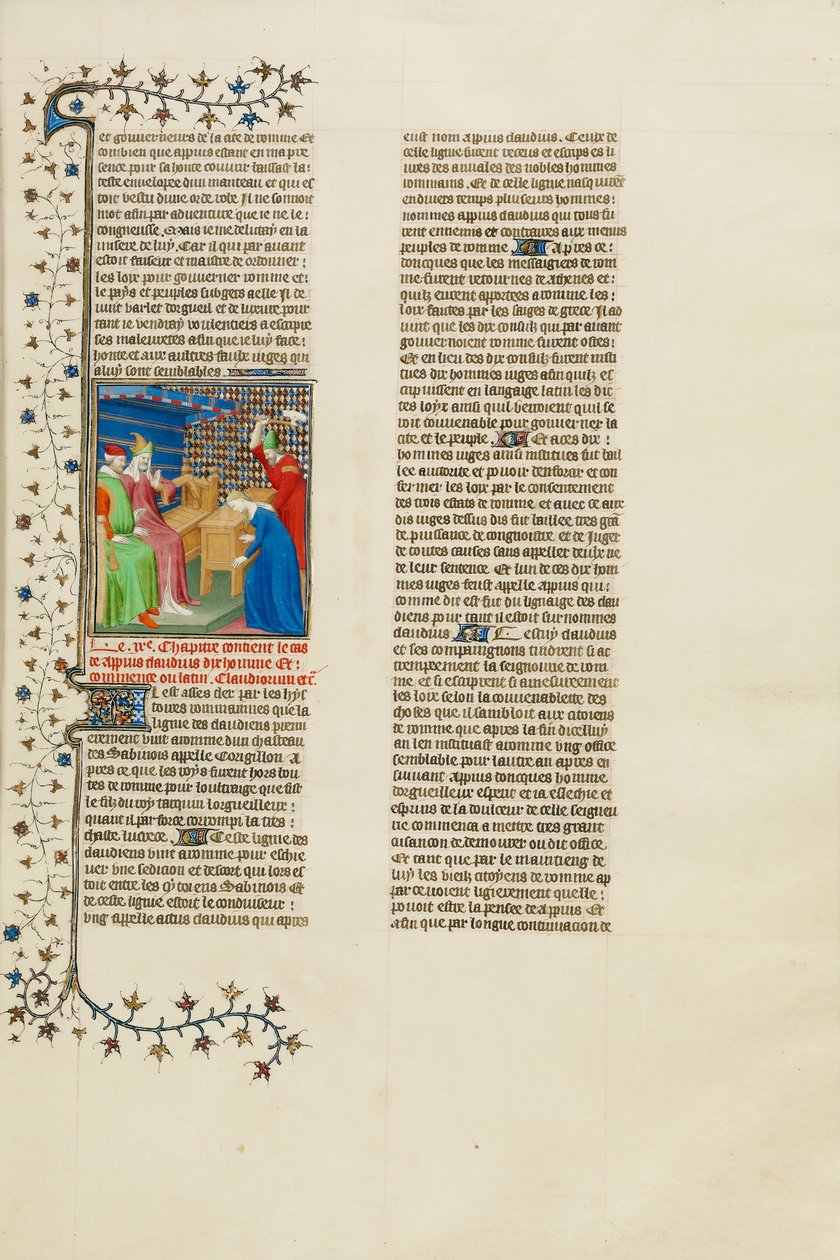 et gouverneurs de la cite de romme Et
combien que appius estant en ma pre
sence pour sa honte couvrir laissast la
teste envelopee dun manteau et qui es
toit vestu dune orde robe Il ne sonnoit
mot afin par adventure que ie ne le
congneusse. Mais ie me delittay en la
misere de luy. Car il qui par avant
estoit faiseur et maistre de ordonner
les loix pour gouverner romme et
le pays et peuples subgets a elle Il de
vint varlet dorgueil et de luxure pour
tant ie vendray voulentiers a escripre
ses maleurtes afin que ie luy face
honte et aux aultres faulx iuges qui
a luy sont semblables.
Le .xe. Chapitre contient le cas
de Appius claudius dix homme Et
commence ou latin. Claudiorum etc.
Il est asses cler par les hys
toires rommaines que la
ligne des claudiens premi
erement vint a romme dun chasteau
des Sabinois appelle Corigillon A
pres ce que les roys furent hors bou
tes de romme pour loultraige que fist
le filz du roy tarquin lorgueilleux
quant il par force corrompi la tres
chaste lucrece. Ceste lignie des
claudiens vint a romme pour eschie
ver une sedicion et descort qui lors es
toit entre les cytoiens Sabinois Et
de ceste lignie estoit le conduiseur
ung appelle actus claudius qui apres
eust nom appius claudius. Ceulx de
celle lignie furent receus et escrips es li
vres des annales des nobles hommes
rommains. Et de celle lignie nasquirent
en divers temps pluseurs hommes
nommes appius claudius qui tous fu
rent ennemis et contraires aux menus
peuples de romme Apres ce
doncques que les messaigiers de rom
me furent retournes de athenes et
quilz eurent apportees a romme les
loix faittes par les saiges de grece Il ad
vint que les dix consulz qui par avant
gouvernoient romme furent ostes
Et en lieu des dix consulz furent insti
tues dix hommes iuges afin quilz es
cripvissent en langaige latin les dic
tes loix ainsi quil verroient quil se
roit couvenable pour gouverner la
cite et le peuple. Et a ces dix
hommes iuges ainsi institues fut bail
lee auctorite et pouoir denforcer et con
fermer les loix par le consentement
des trois estats de romme et avec ce aux
dis iuges dessus dis fut baillee tres grant
de puissance de congnoistre et de Juger
de toutes causes sans appeller deulx ne
de leur sentence. Et lun de ces dix hom
mes iuges feust appelle Appius qui
comme dit est fut du lignaige des clau
diens pour tant il estoit surnommes
claudius Cestuy claudius
et ses compaignons tindrent si at
trempeement la seignourie de rom
me et si escriprent si amesureement
les loix selon la couvenablete des
choses que il sambloit aux citoiens
de romme que apres la fin dicelluy
an len instituast a romme ung office
semblable pour lautre an apres en
suivant Appius doncques homme
dorgueilleux esperit et ia eslechie et
esprins de la doulceur de celle seigneu
rie commenca a mettre tres grant
cusancon de demourer ou dit office
Et tant que par le maintieng de
luy les vieilz citoyens de romme ap
parcevoient ligierement quelle
povoit estre la pensee de Appuis Et
afin que par longue continuacion de